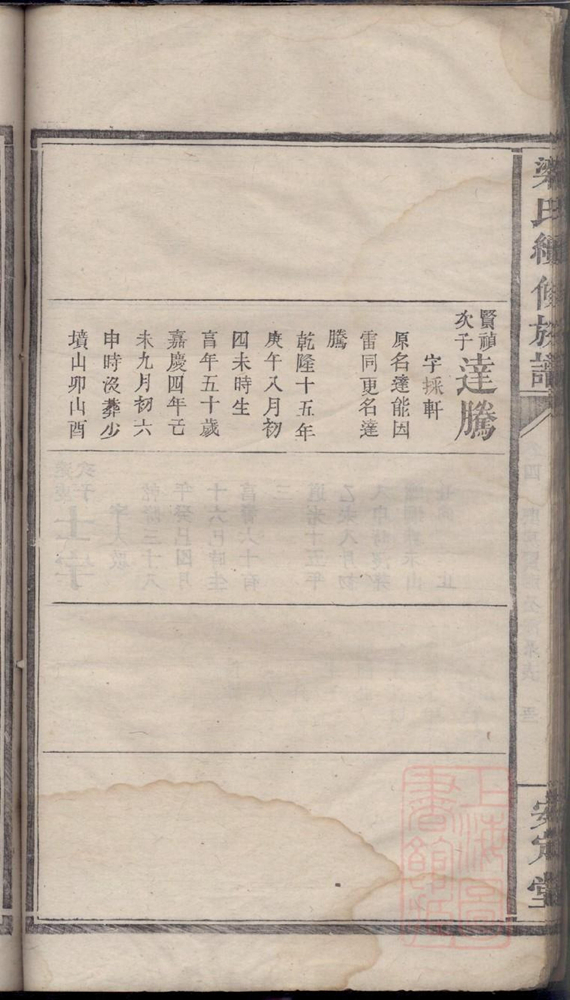 梁氏續修族譜
安定堂
賢禎
次子
達騰
字採軒
原名達能因
雷同更名達
騰
乾隆十五年
庚午八月初
四未時生
享年五十歲
嘉慶四年己
未九月初六
申時没葬少
墳山卯山酉